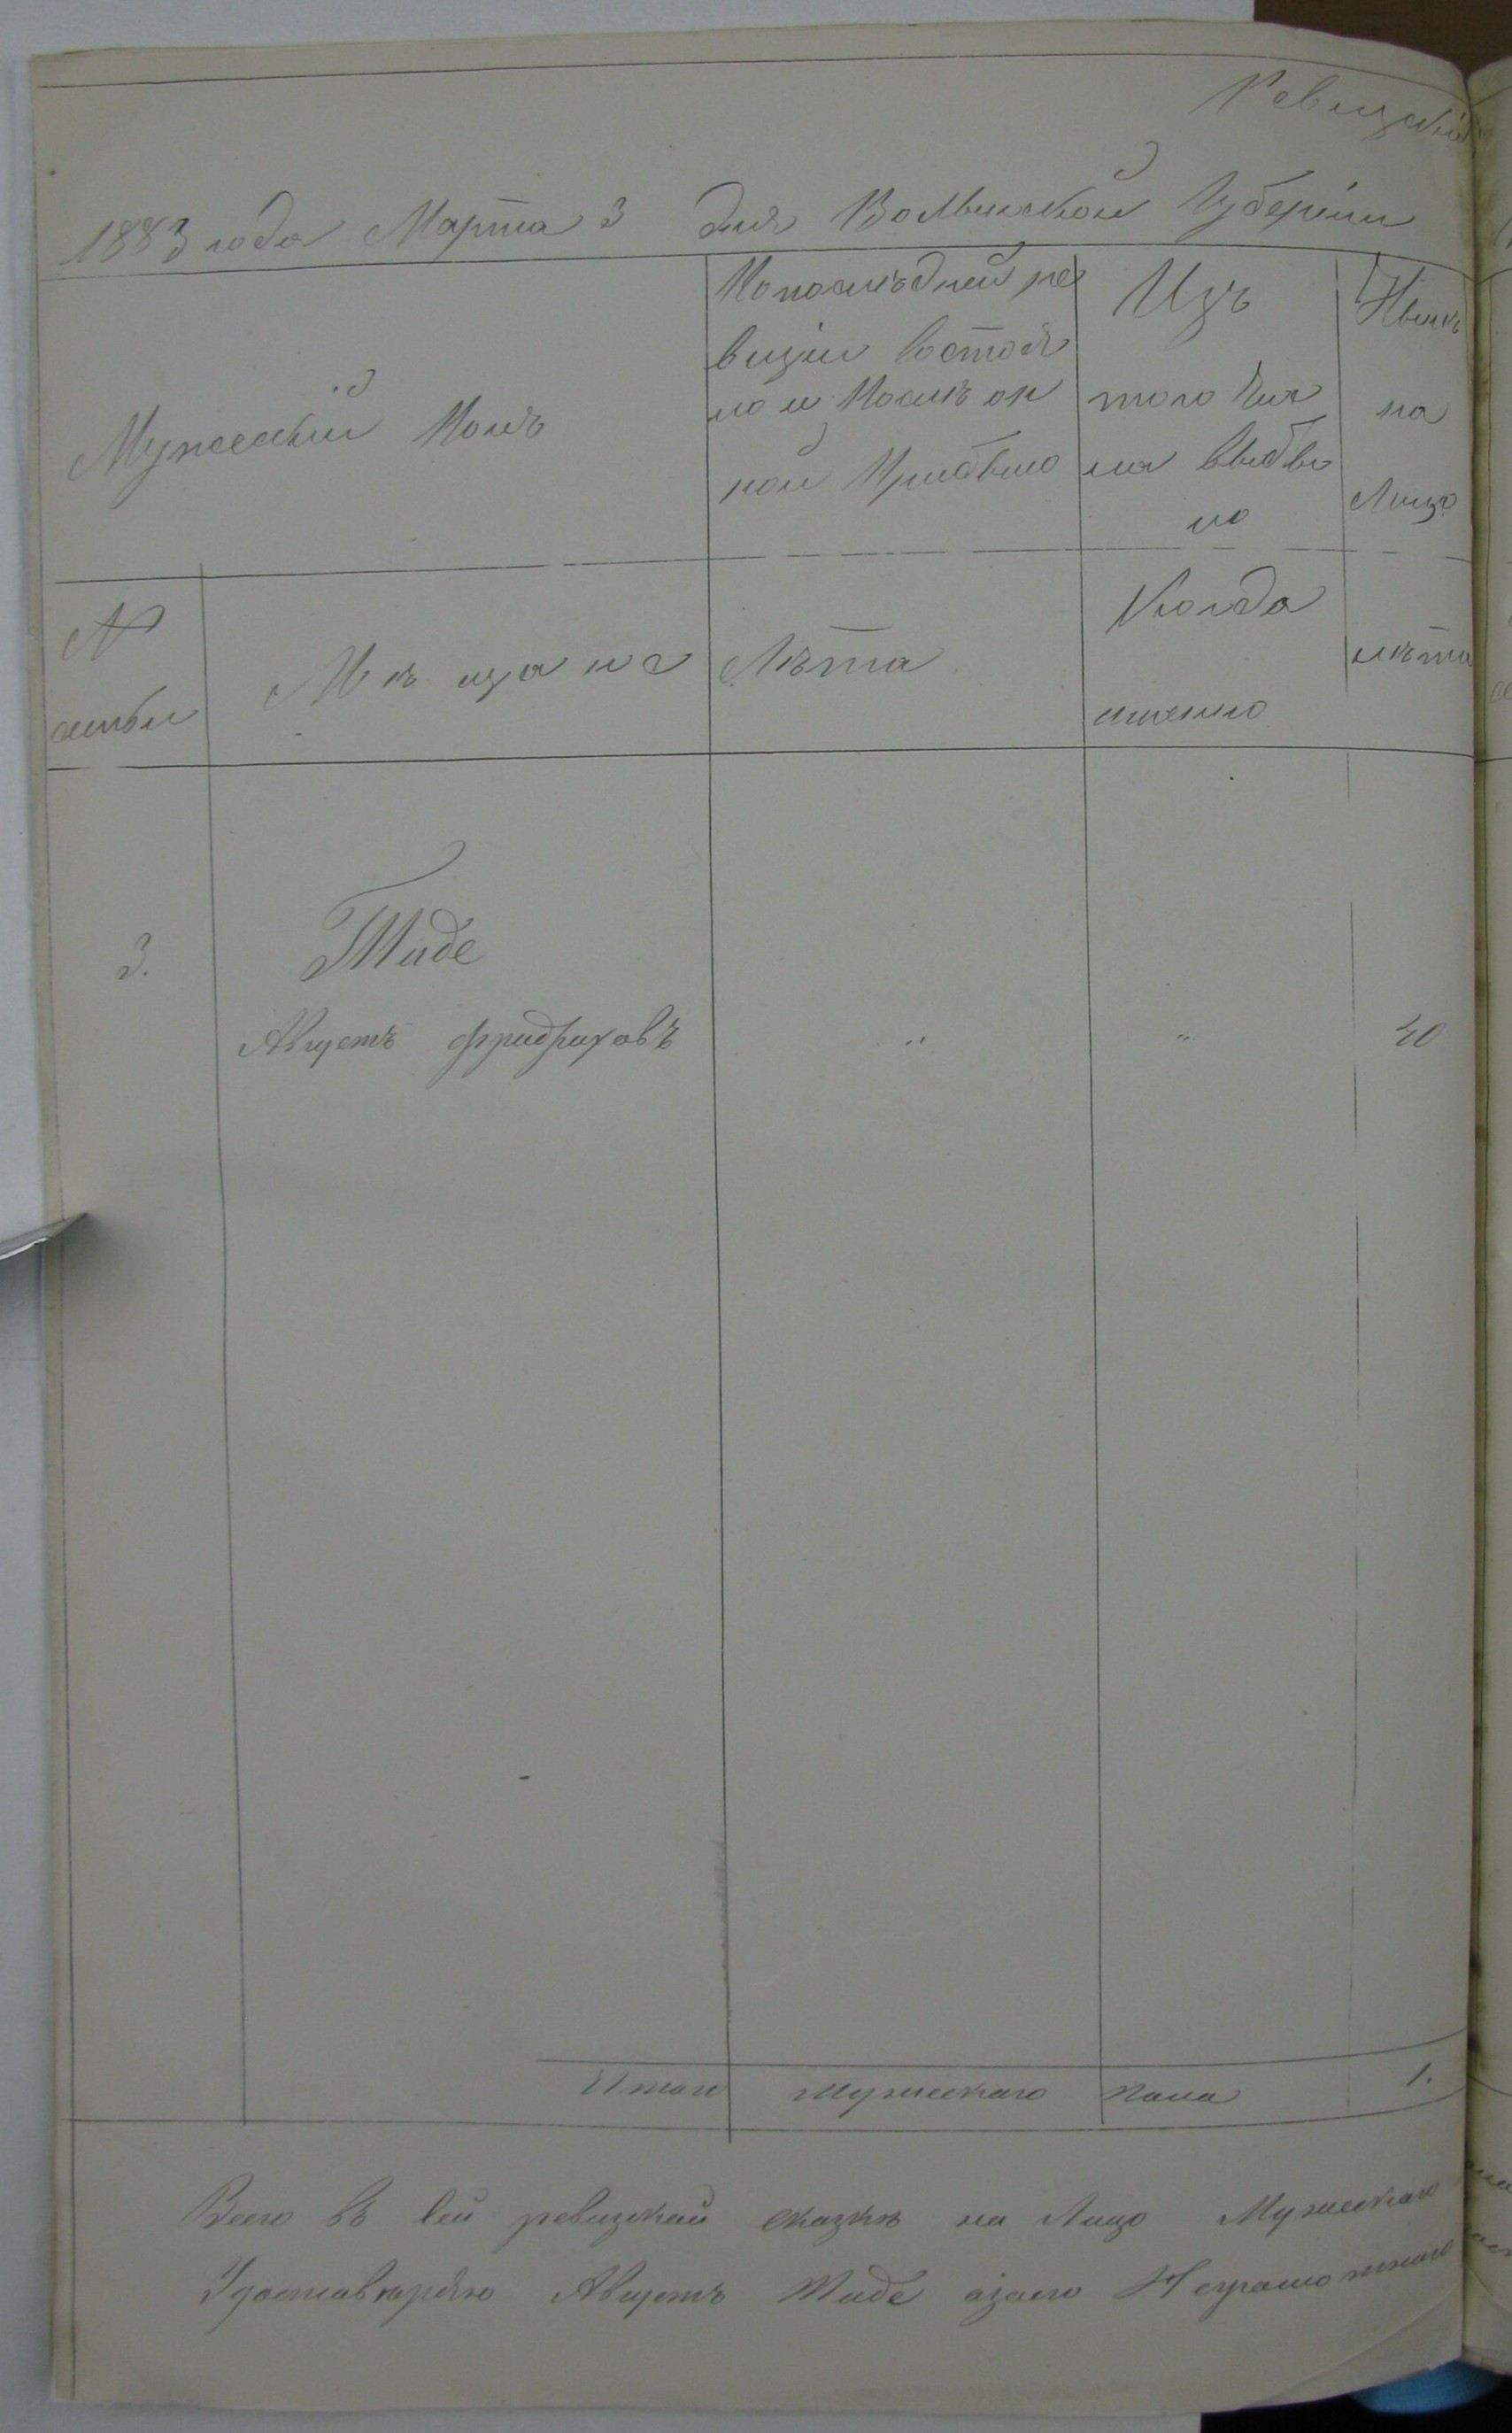 Ревизскій
1883 года Марта 3 дня Волынской Губерніи
Мужескій Полъ
Попослѣдней ре
визіи Состоя
ло и Послѣ он
ной Прибыло
Изъ
того Чи
ла Выбы
ло
Нынѣ
на
Лицо
№
семьи
Мѣщане
Лѣта
Когда
именно
лѣта
3.
Тиде
Августъ Фридриховъ
"
"
40
Итого Мужескаго пола 1.
Всего въ сей ревизской сказкѣ на Лицо Мужескаго
Удостовѣряю Августъ Тиде азаего Неграмотнаго